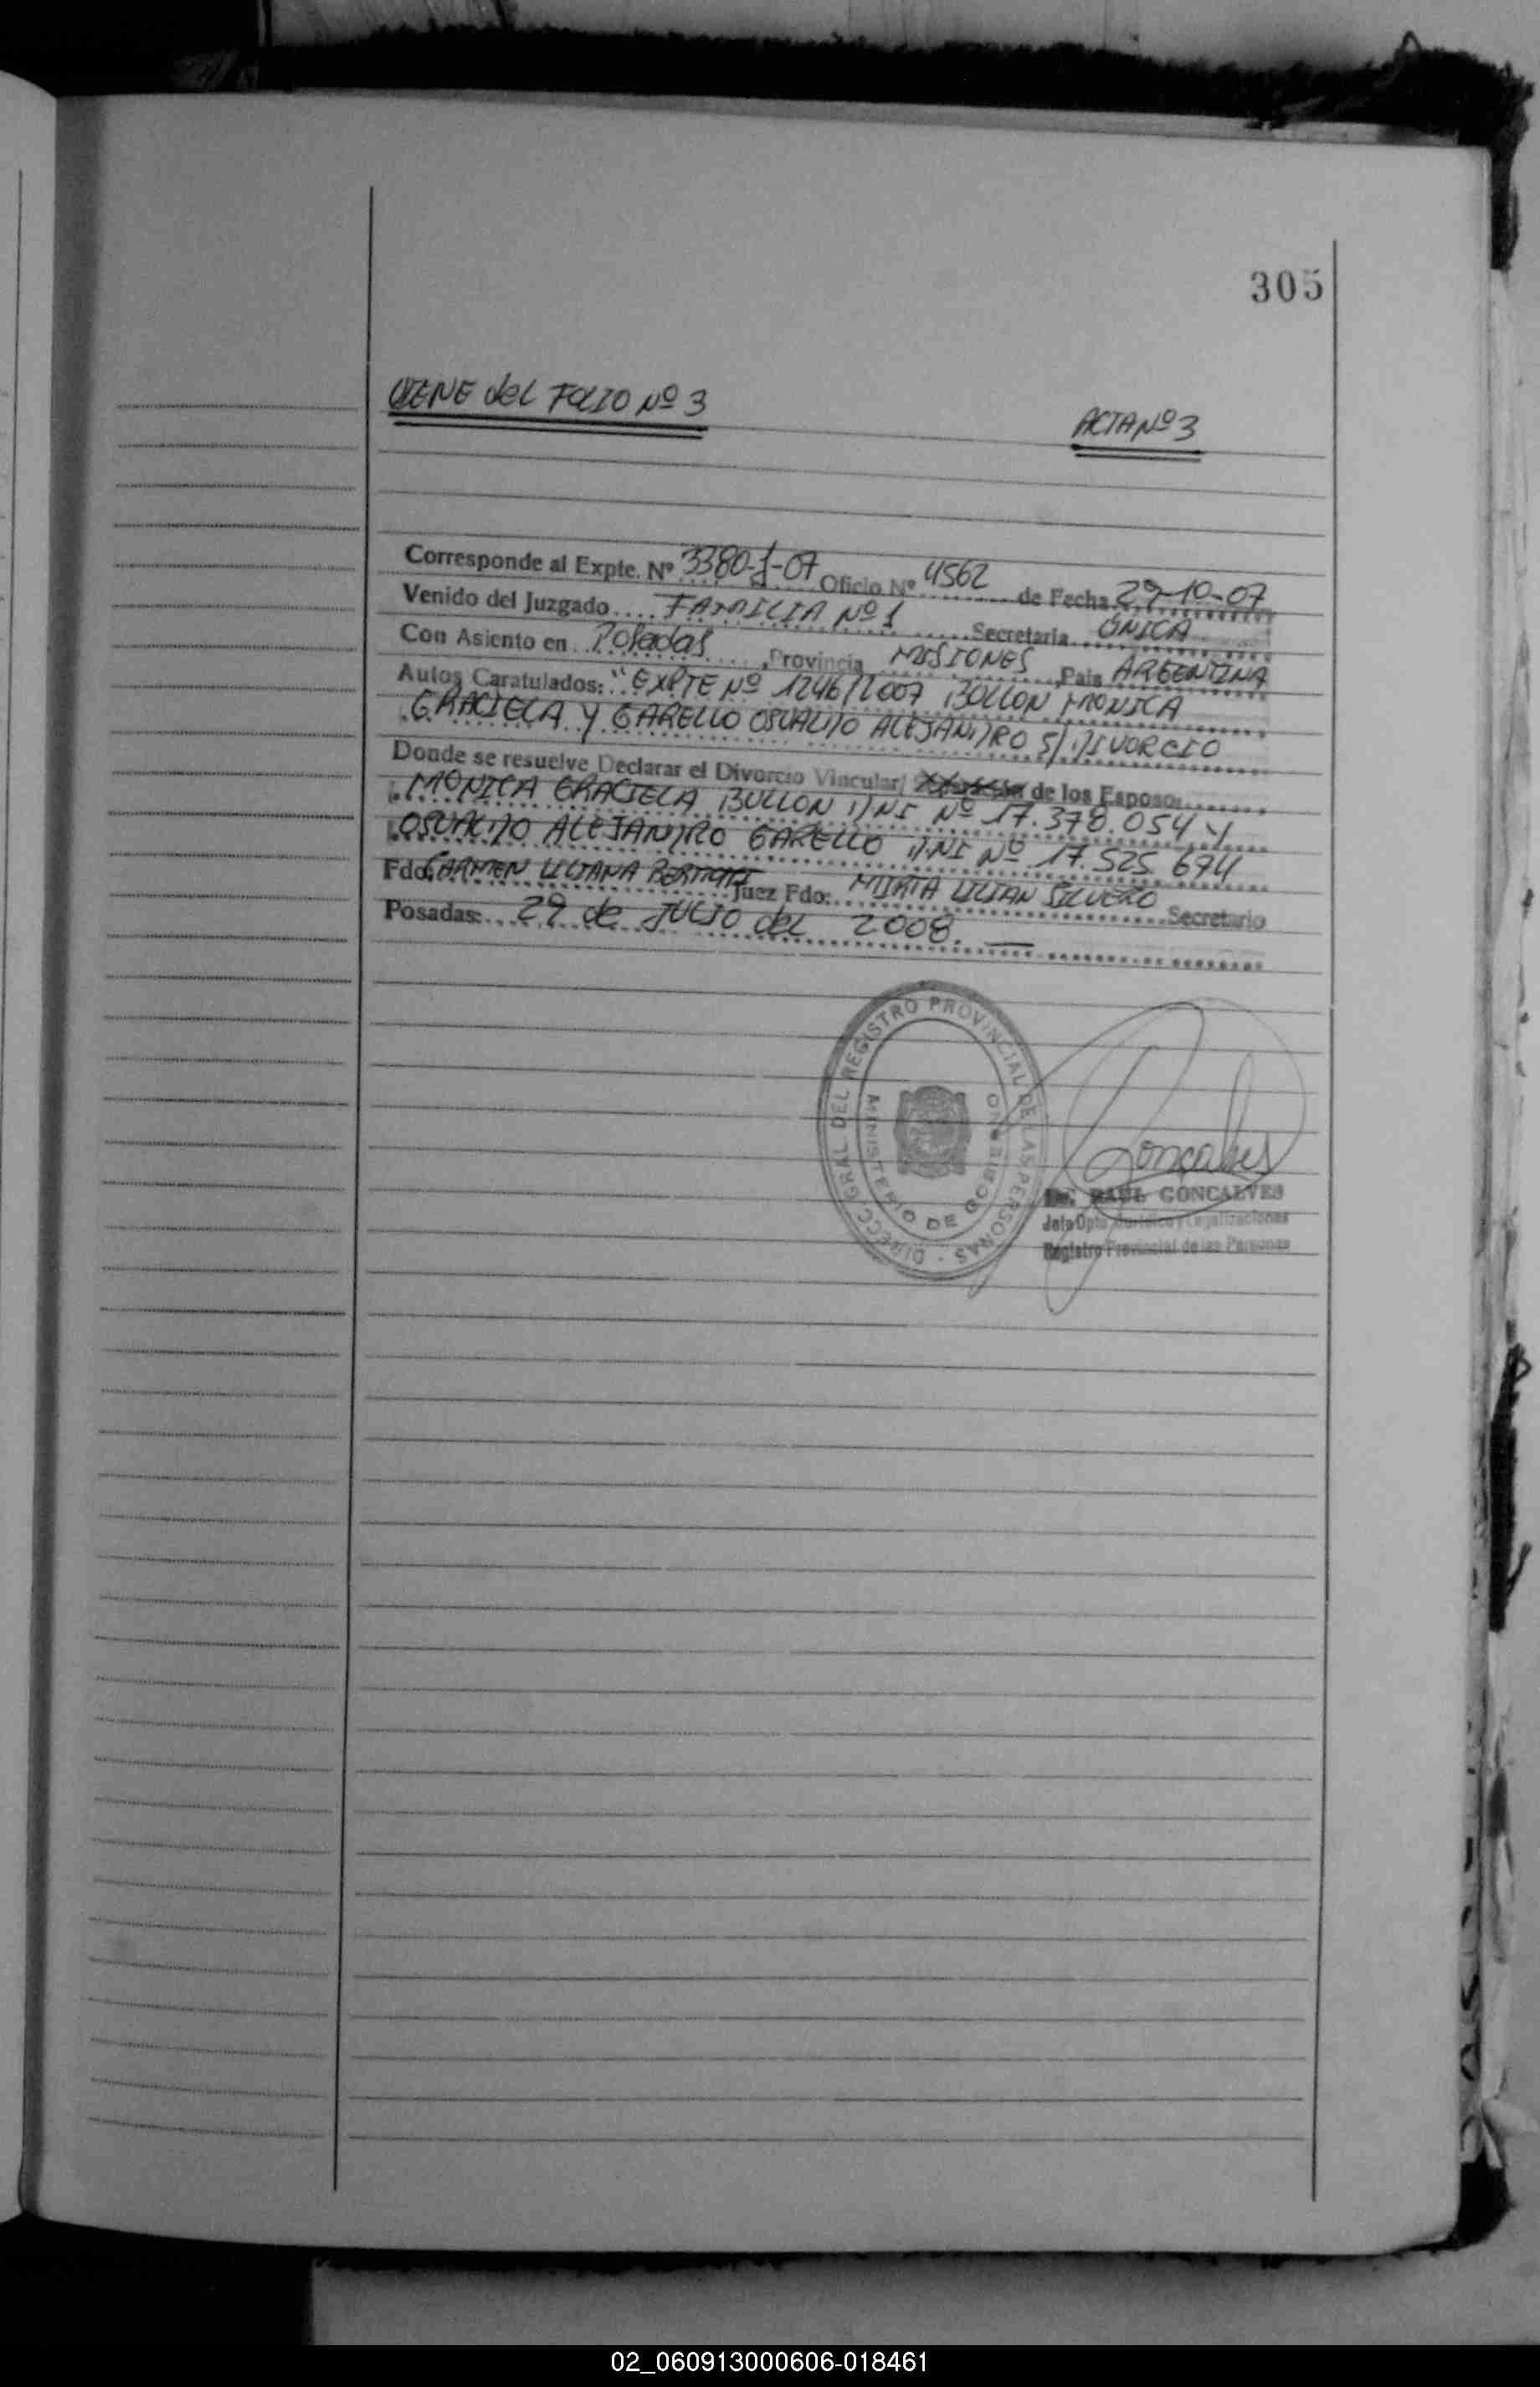 305
VIENE del FOLIO Nº 3
ACTA Nº 3
Corresponde al Expte. Nº 3380-J-07 Oficio Nº 4562 de Fecha 29-10-07
Venido del Juzgado FAMILIA Nº 1 Secretaria UNICA
Con Asiento en Posadas, Provincia MISIONES, Pais ARGENTINA
Autos Caratulados: "EXPTE Nº 1246/2007 BOLLON MONICA
GRACIELA Y GARELLO OSVALDO ALEJANDRO S/ DIVORCIO
Donde se resuelve Declarar el Divorcio Vincular/ de los Esposos
MONICA GRACIELA BULLON DNI Nº 17.378.054 Y
OSVALDO ALEJANDRO GARELLO DNI Nº 17.525.674
Fdo: CARMEN LILIANA Juez Fdo: MIRTA LILIAN SILVERO Secretario
Posadas: 29 de JULIO del 2008.
DIRECC GRAL DEL REGISTRO PROVINCIAL DE LAS PERSONAS
MINISTERIO DE GOBIERNO
Goncalves
RAUL GONCALVES
Jefe Dpto. Jurídico y Legalizaciones
Registro Provincial de las Personas
02_060913000606-018461